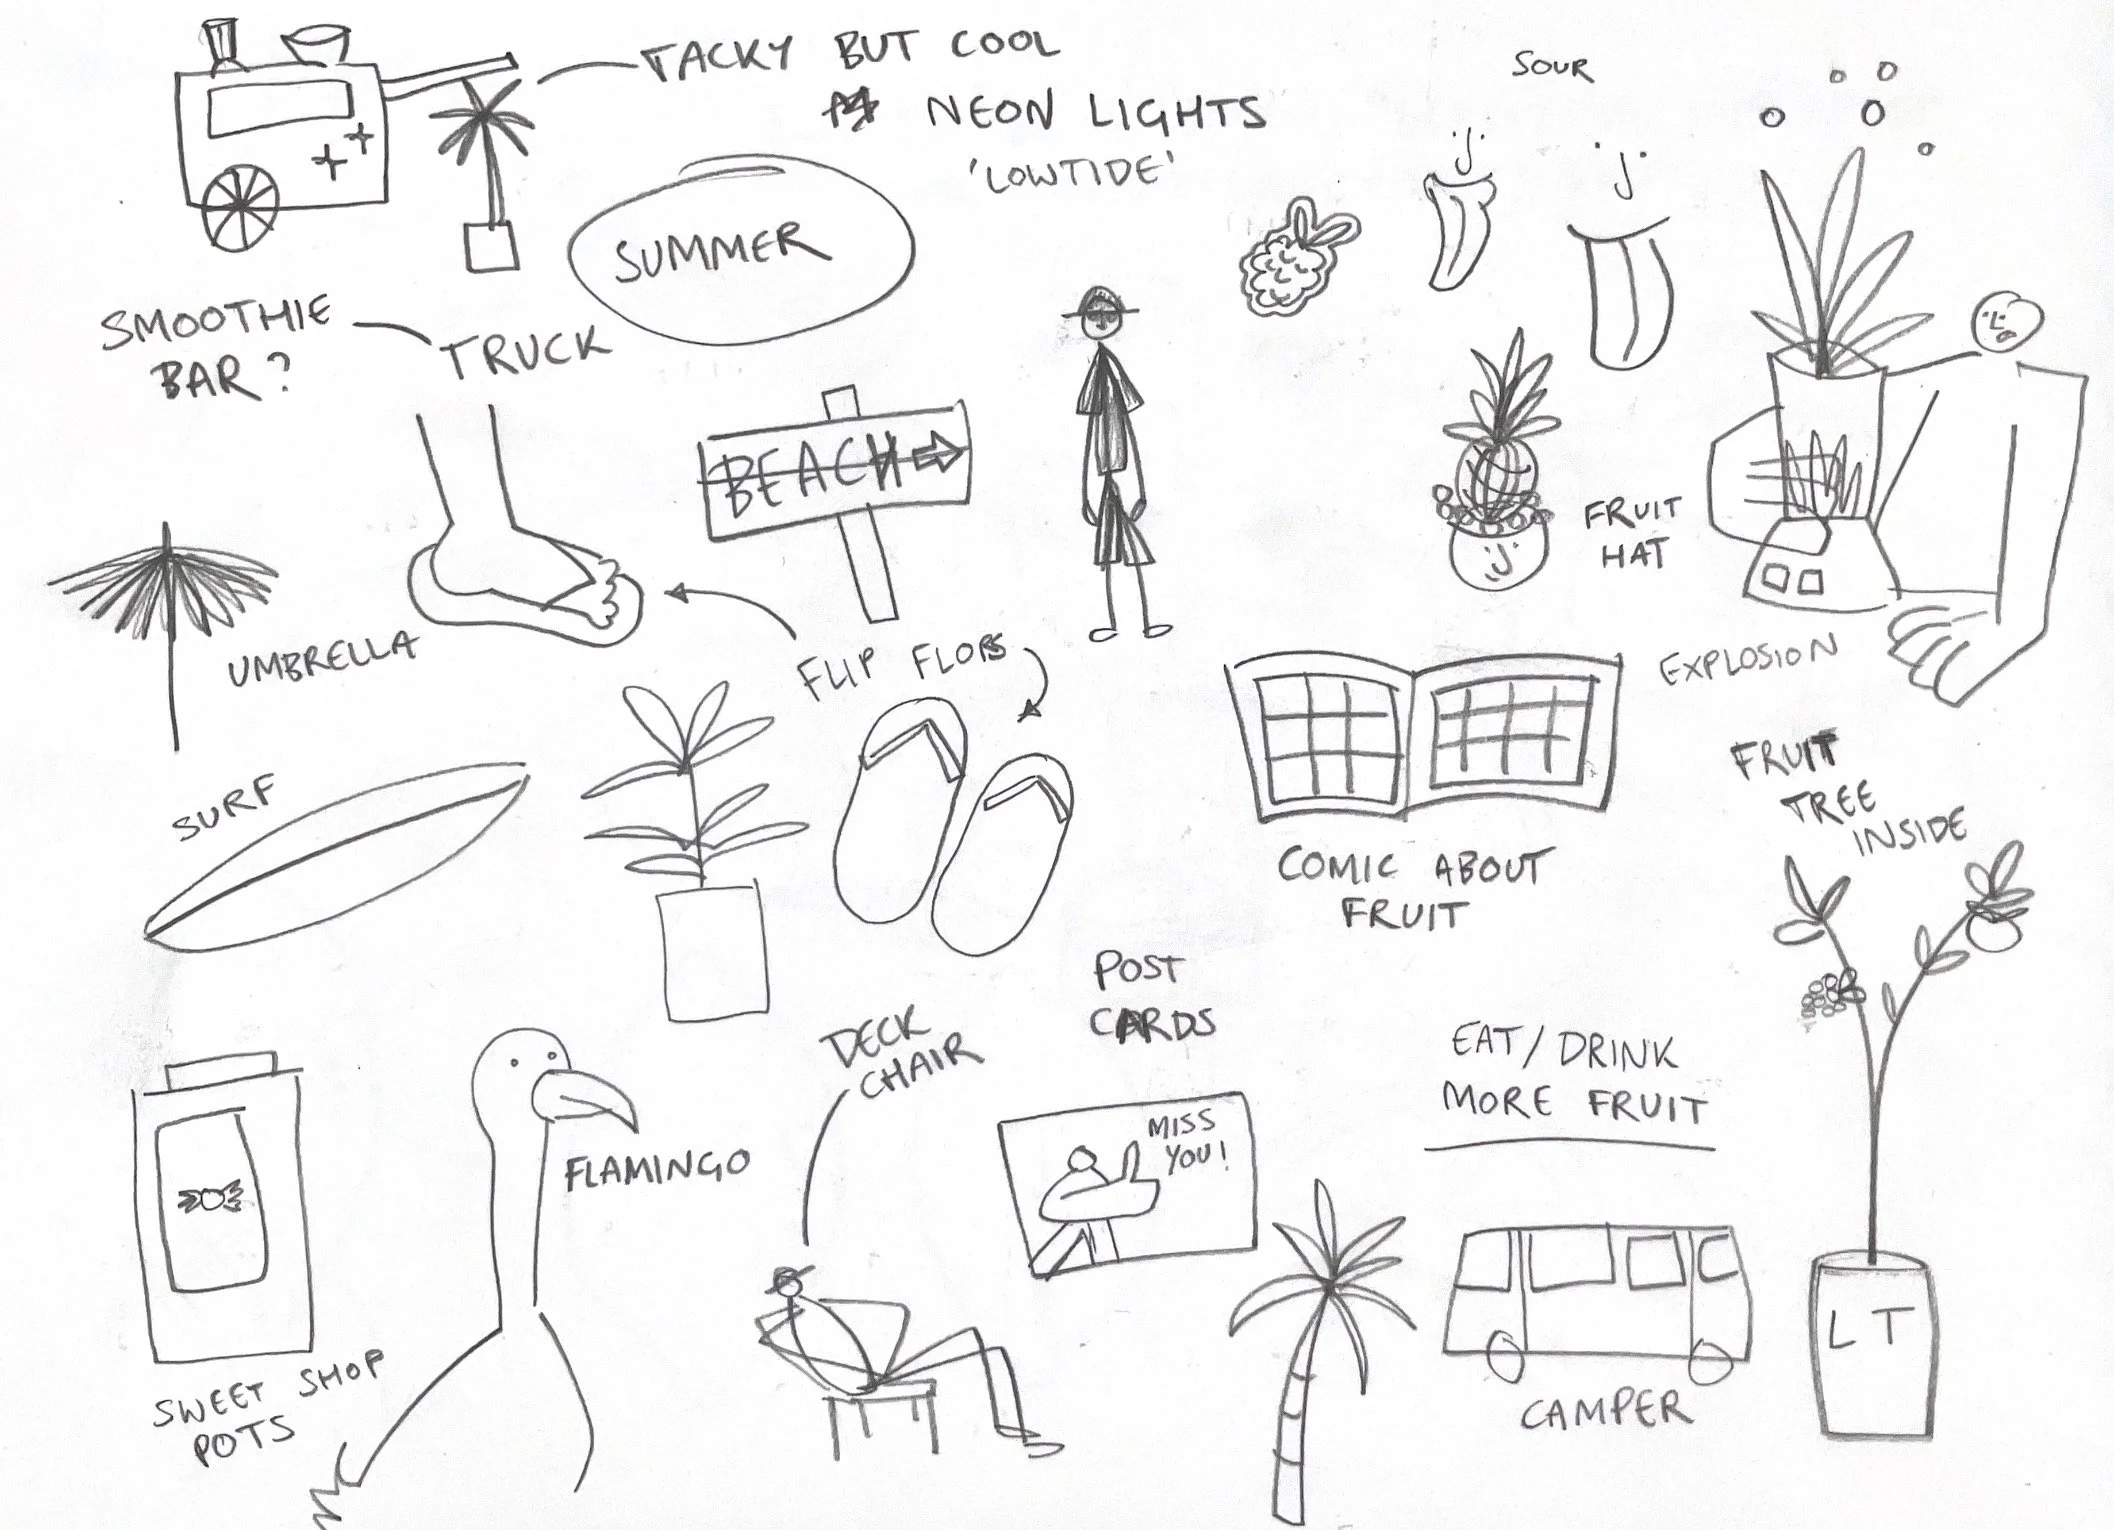 TACKY BUT COOL
NEON LIGHTS
'LOWTIDE'
SOUR
SUMMER
SMOOTHIE
BAR?
TRUCK
BEACH
FRUIT
HAT
UMBRELLA
FLIP FLOPS
EXPLOSION
SURF
FRUIT
TREE
INSIDE
COMIC ABOUT
FRUIT
POST
CARDS
DECK
CHAIR
EAT/DRINK
MORE FRUIT
MISS
YOU!
FLAMINGO
LT
SWEET SHOP
POTS
CAMPER